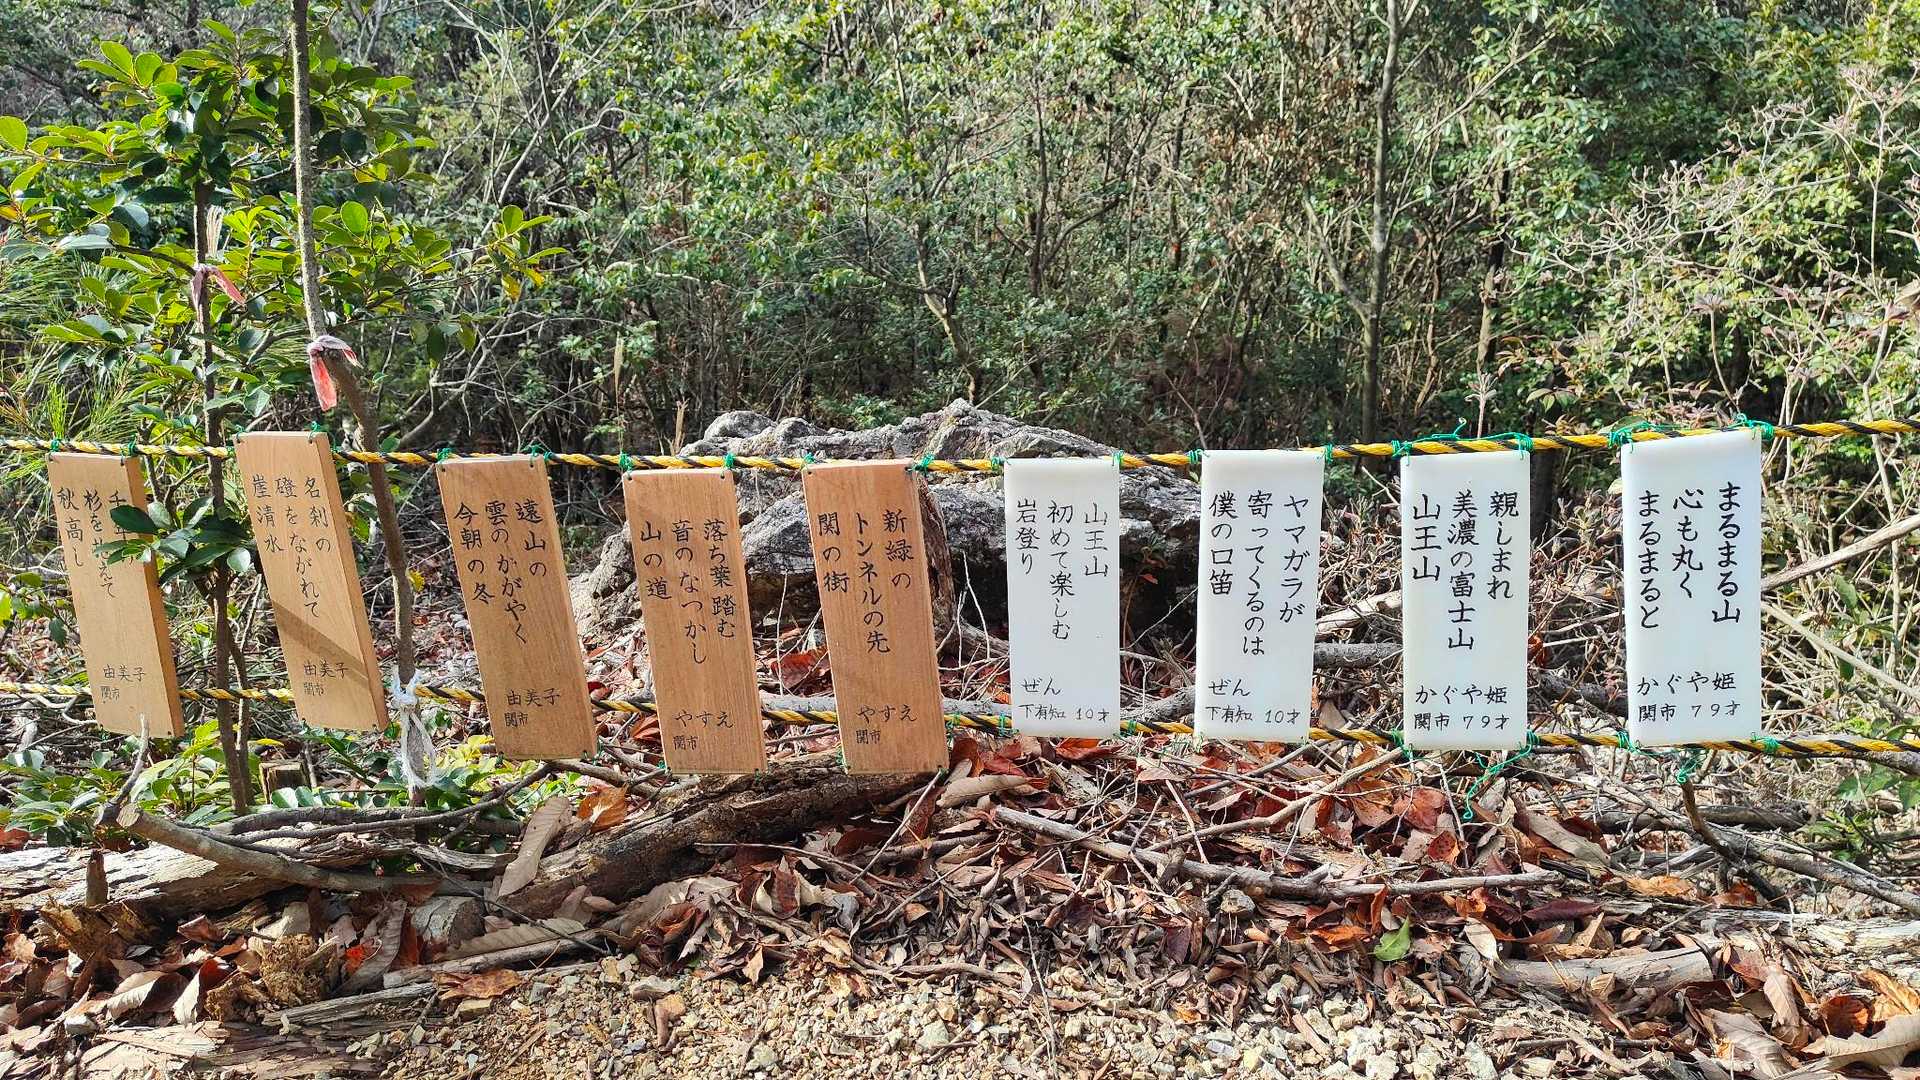 まるまる山
心も丸く
まるまると
かぐや姫
関市 79才
親しまれ
美濃の富士山
山王山
かぐや姫
関市 79才
ヤマガラが
寄ってくるのは
僕の口笛
ぜん
下有知 10才
山王山
初めて楽しむ
岩登り
ぜん
下有知 10才
新緑の
トンネルの先
関の街
やすえ
関市
落ち葉踏む
音のなつかし
山の道
やすえ
関市
遠山の
雲のかがやく
今朝の冬
由美子
関市
名刹の
磴をながれて
崖清水
由美子
関市
千
杉を えて
秋高し
由美子
関市